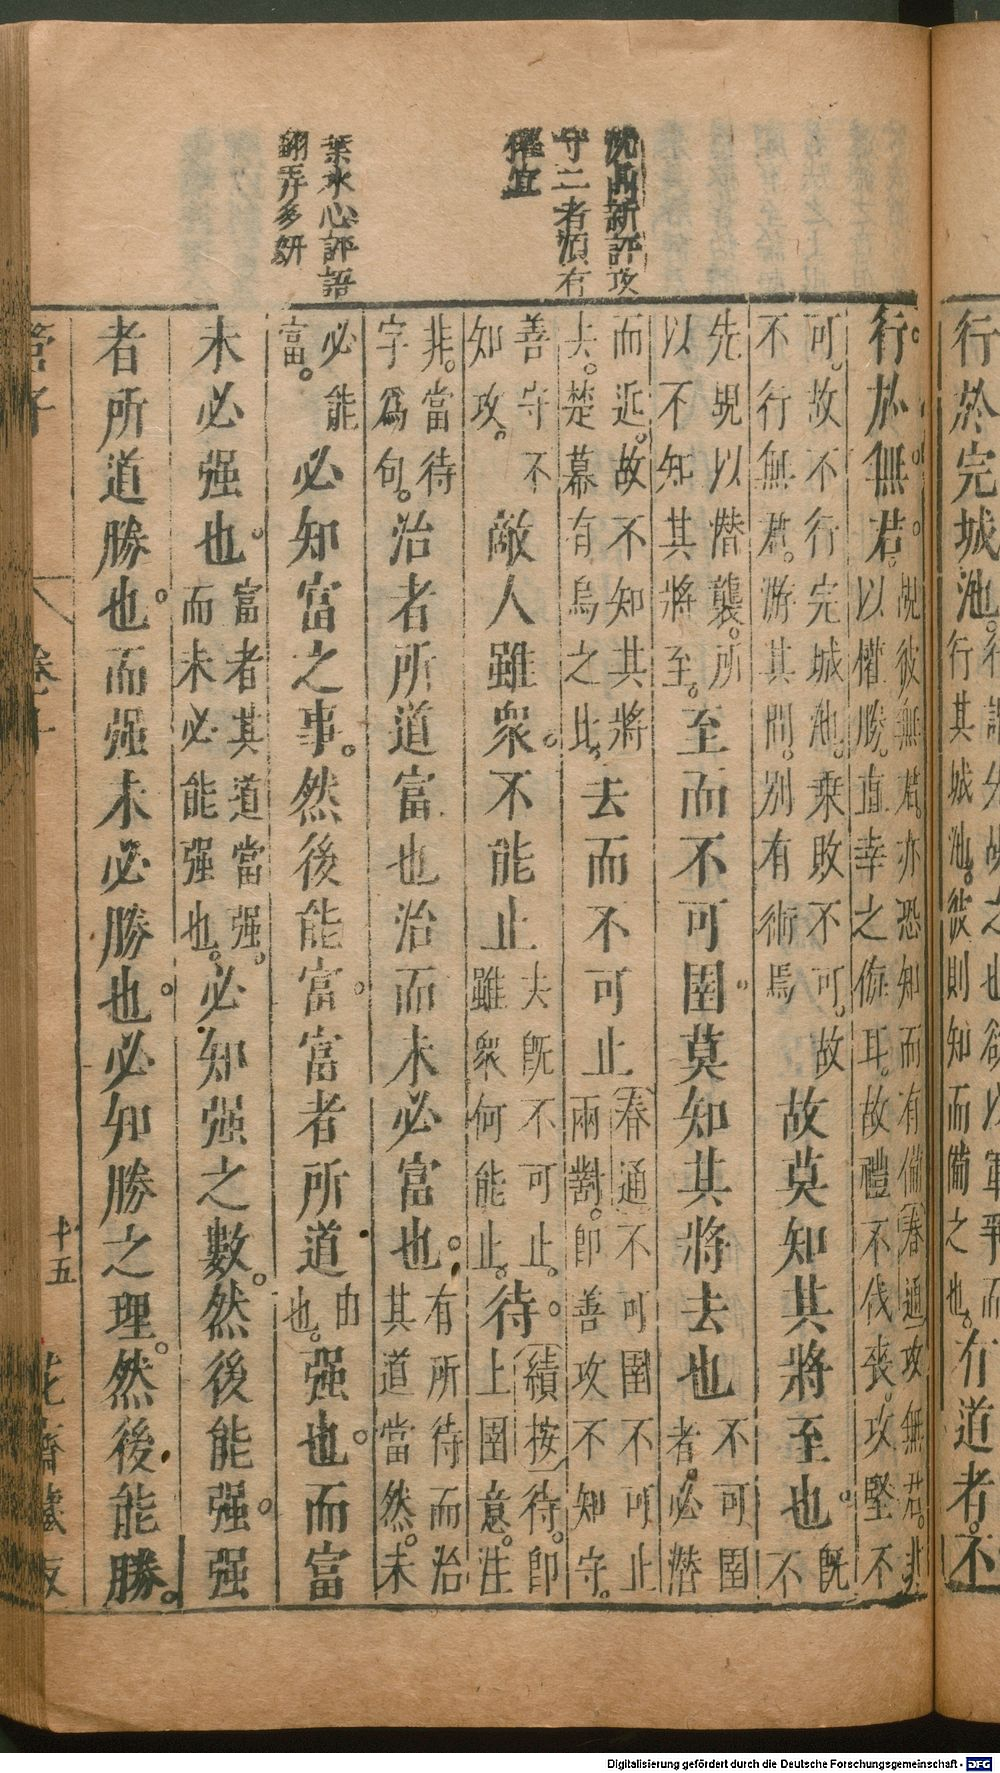 行於完城池。
行其城池。彼則知而備之也。有道者。不
沈□新評攻
守二者須有
權宜
葉水心評語
翻弄多妍
行於無君。覘彼無君。亦恐知而有備(春通)攻無君。非
以權勝。直幸之侮耳。故禮不伐喪。攻堅不
可。故不行完城池。乘敗不可。故
不行無君。游其間。別有術焉
故莫知其將至也。既
不
先覘以潛襲。所
以不知其將至。至而不可圉。莫知其將去也不可圉
者。必潛
而近。故不知其將
去。楚幕有烏之比。去而不可止(春通)不可圉不可止
兩對。即善攻不知守。
善守不
知攻。敵人雖衆。不能止夫既不可止。
雖衆何能止。待。(績按)待。即
上圉意。注
非。當待
字為句。治者所道富也治而未必富也。有所待而治
其道當然。未
必能
富。必知富之事。然後能富。富者所道由
也。強也。而富
未必强也。富者其道當强。
而未必能强也。必知强之數。然後能强。强
者所道勝也。而强未必勝也。必知勝之理。然後能勝。
管子
卷二
十五
花齋藏板
Digitalisierung gefördert durch die Deutsche Forschungsgemeinschaft - DFG